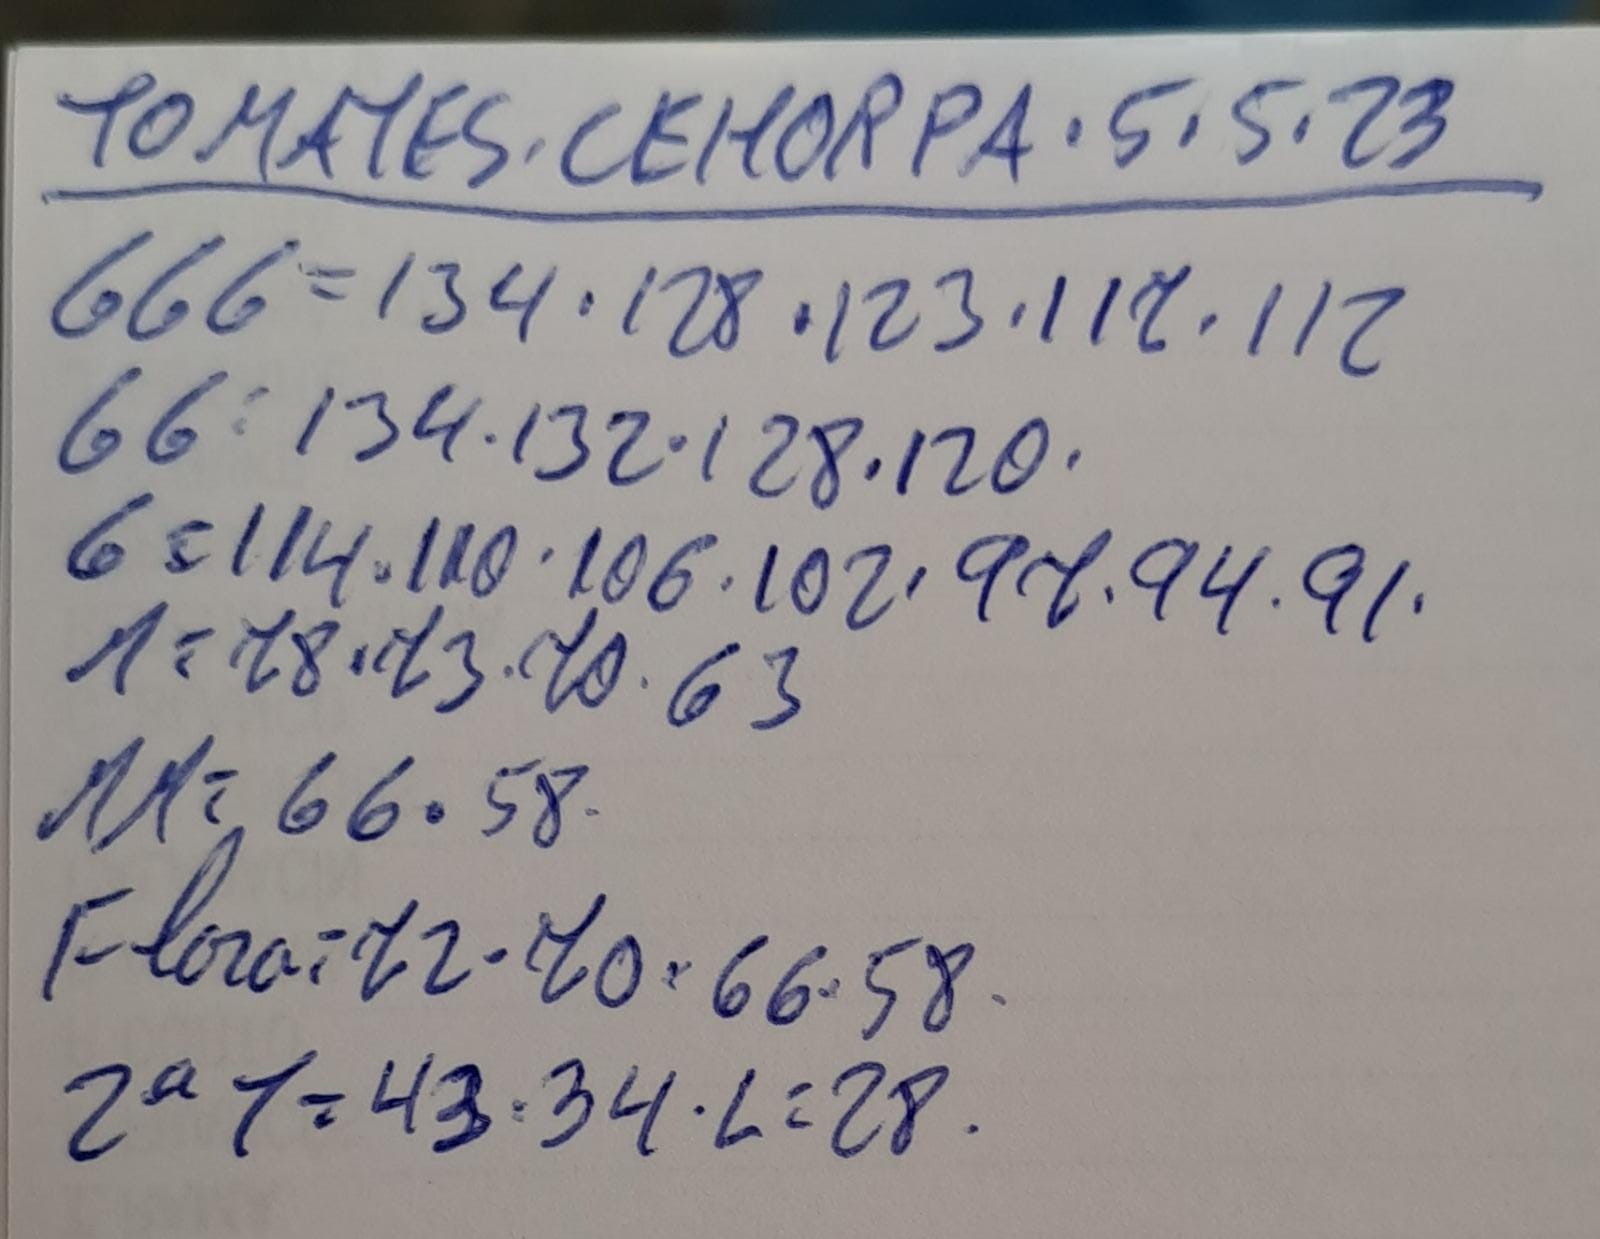 TOMATES. CEHORPA. 5. 5. 23
666 = 134. 128. 123. 117. 112
66 = 134. 132. 128. 120.
6 = 114. 110. 106. 102. 97. 94. 91.
M = 78. 73. 70. 63
MM = 66. 58.
Flora = 72. 70. 66. 58.
2ª T = 43. 34. L = 28.